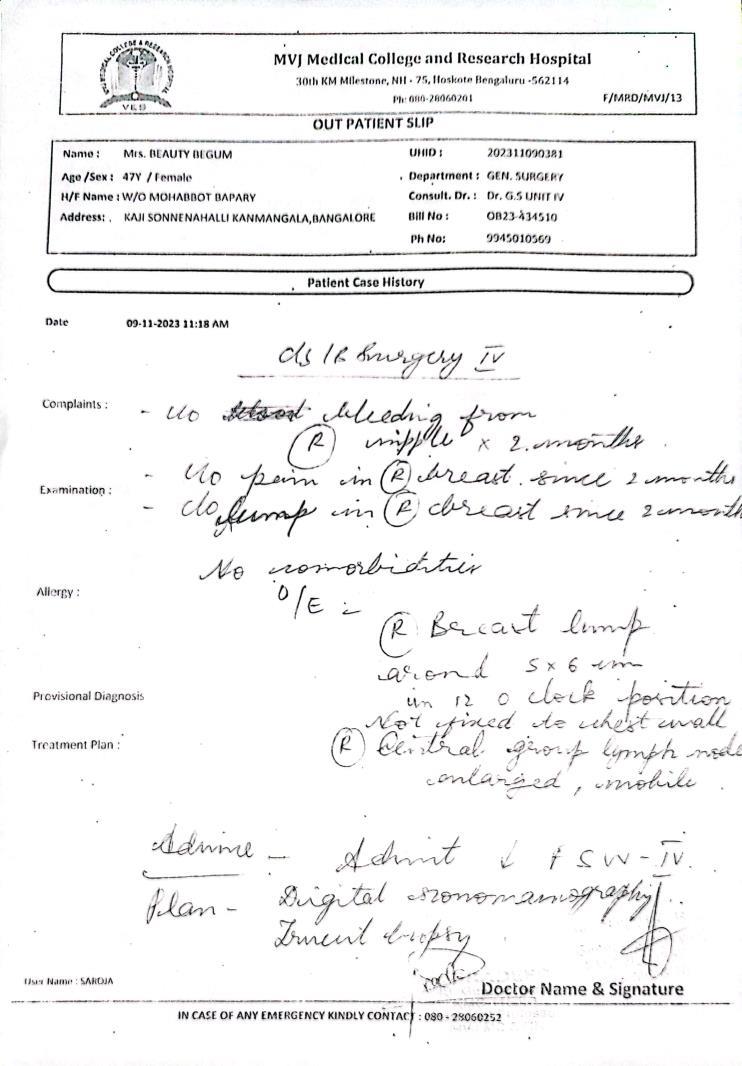 MVJ MEDICAL COLLEGE & RESEARCH HOSPITAL
VES
MVJ Medical College and Research Hospital
30th KM Milestone, NH - 75, Hoskote Bengaluru -562114
Ph: 080-28060201
F/MRD/MVJ/13
OUT PATIENT SLIP
Name : Mrs. BEAUTY BEGUM
UHID : 202311090381
Age /Sex : 47Y / Female
Department : GEN. SURGERY
H/F Name : W/O MOHABBOT BAPARY
Consult. Dr. : Dr. G.S UNIT IV
Address: . KAJI SONNENAHALLI KANMANGALA,BANGALORE
Bill No : OB23-434510
Ph No: 9945010569
Patient Case History
Date 09-11-2023 11:18 AM
Surgery IV
Complaints :
- c/o bleeding from
(R) nipple x 2 months.
- c/o pain in (R) breast since 2 months
Examination :
- c/o lump in (R) breast since 2 month
No comorbidities
Allergy :
O/E :
(R) Breast lump
around 5 x 6 cm
Provisional Diagnosis
in 12 o clock position
Not fixed to chest wall
Treatment Plan :
(R) Central group lymph node
enlarged, mobile
Advice - Admit ↓ FSW-IV.
Plan - Digital sonomamography
Trucut biopsy
User Name : SAROJA
Doctor Name & Signature
IN CASE OF ANY EMERGENCY KINDLY CONTACT : 080 - 28060252